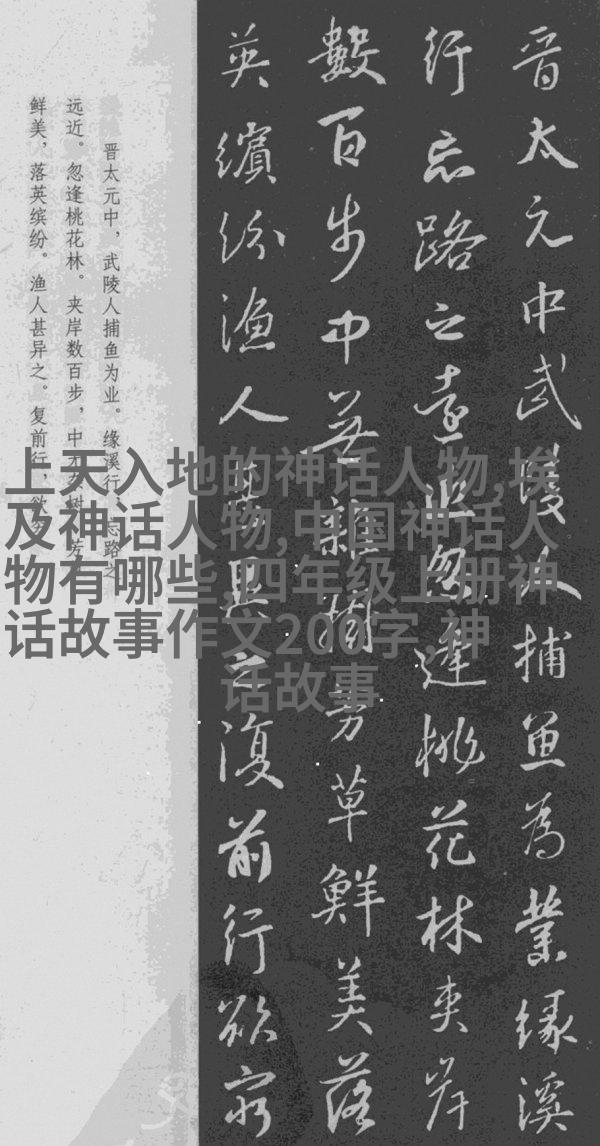 晋太元中武陵人捕魚為業緣溪
行忘路之遠近忽逢桃花林夾岸
數百步中無雜樹芳草鮮美落
英繽紛漁人甚異之復前行欲窮
晋太元中，武陵人捕鱼为业。缘溪行，忘路之
远近。忽逢桃花林。夹岸数百步，中无杂树，芳
鲜美，落英缤纷。渔人甚异之。复前行，欲穷
上天入地的神话人物,埃
及神话人物,中国神话人
物有哪些,四年级上册神
话故事作文200字,神
话故事